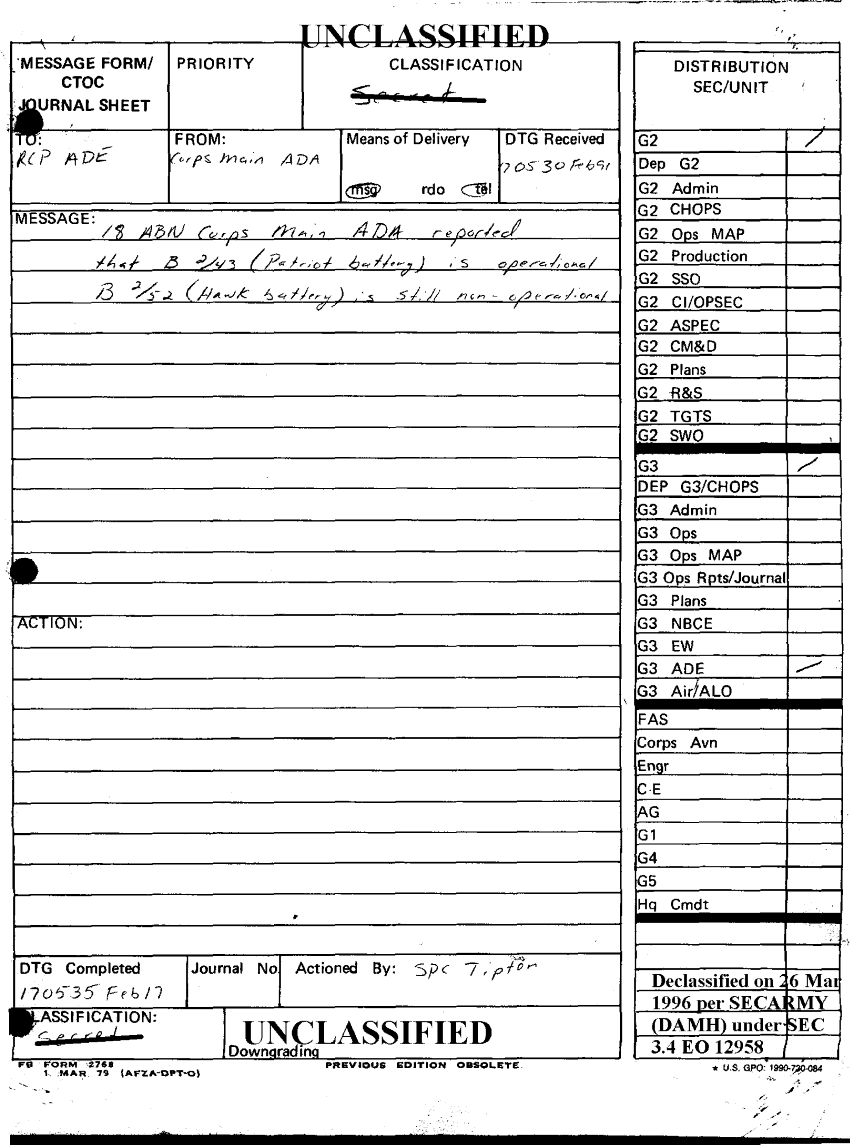 UNCLASSIFIED
MESSAGE FORM/
CTOC
JOURNAL SHEET
PRIORITY
CLASSIFICATION
Secret
TO:
RCP ADE
FROM:
Corps Main ADA
Means of Delivery
msg rdo tel
DTG Received
170530Feb91
MESSAGE:
18 ABN Corps Main ADA reported
that B 2/43 (Patriot battery) is operational
B 2/52 (Hawk battery) is still non-operational
ACTION:
DTG Completed
170535 Feb17
Journal No.
Actioned By: SPC Tipton
CLASSIFICATION:
Secret
UNCLASSIFIED
Downgrading
FB FORM 2768
1. MAR. 79 (AFZA-DPT-O)
PREVIOUS EDITION OBSOLETE.
DISTRIBUTION
SEC/UNIT
G2
Dep G2
G2 Admin
G2 CHOPS
G2 Ops MAP
G2 Production
G2 SSO
G2 CI/OPSEC
G2 ASPEC
G2 CM&D
G2 Plans
G2 R&S
G2 TGTS
G2 SWO
G3
DEP G3/CHOPS
G3 Admin
G3 Ops
G3 Ops MAP
G3 Ops Rpts/Journal
G3 Plans
G3 NBCE
G3 EW
G3 ADE
G3 Air/ALO
FAS
Corps Avn
Engr
C-E
AG
G1
G4
G5
Hq Cmdt
Declassified on 26 Mar
1996 per SECARMY
(DAMH) under SEC
3.4 EO 12958
★ U.S. GPO: 1990-730-084